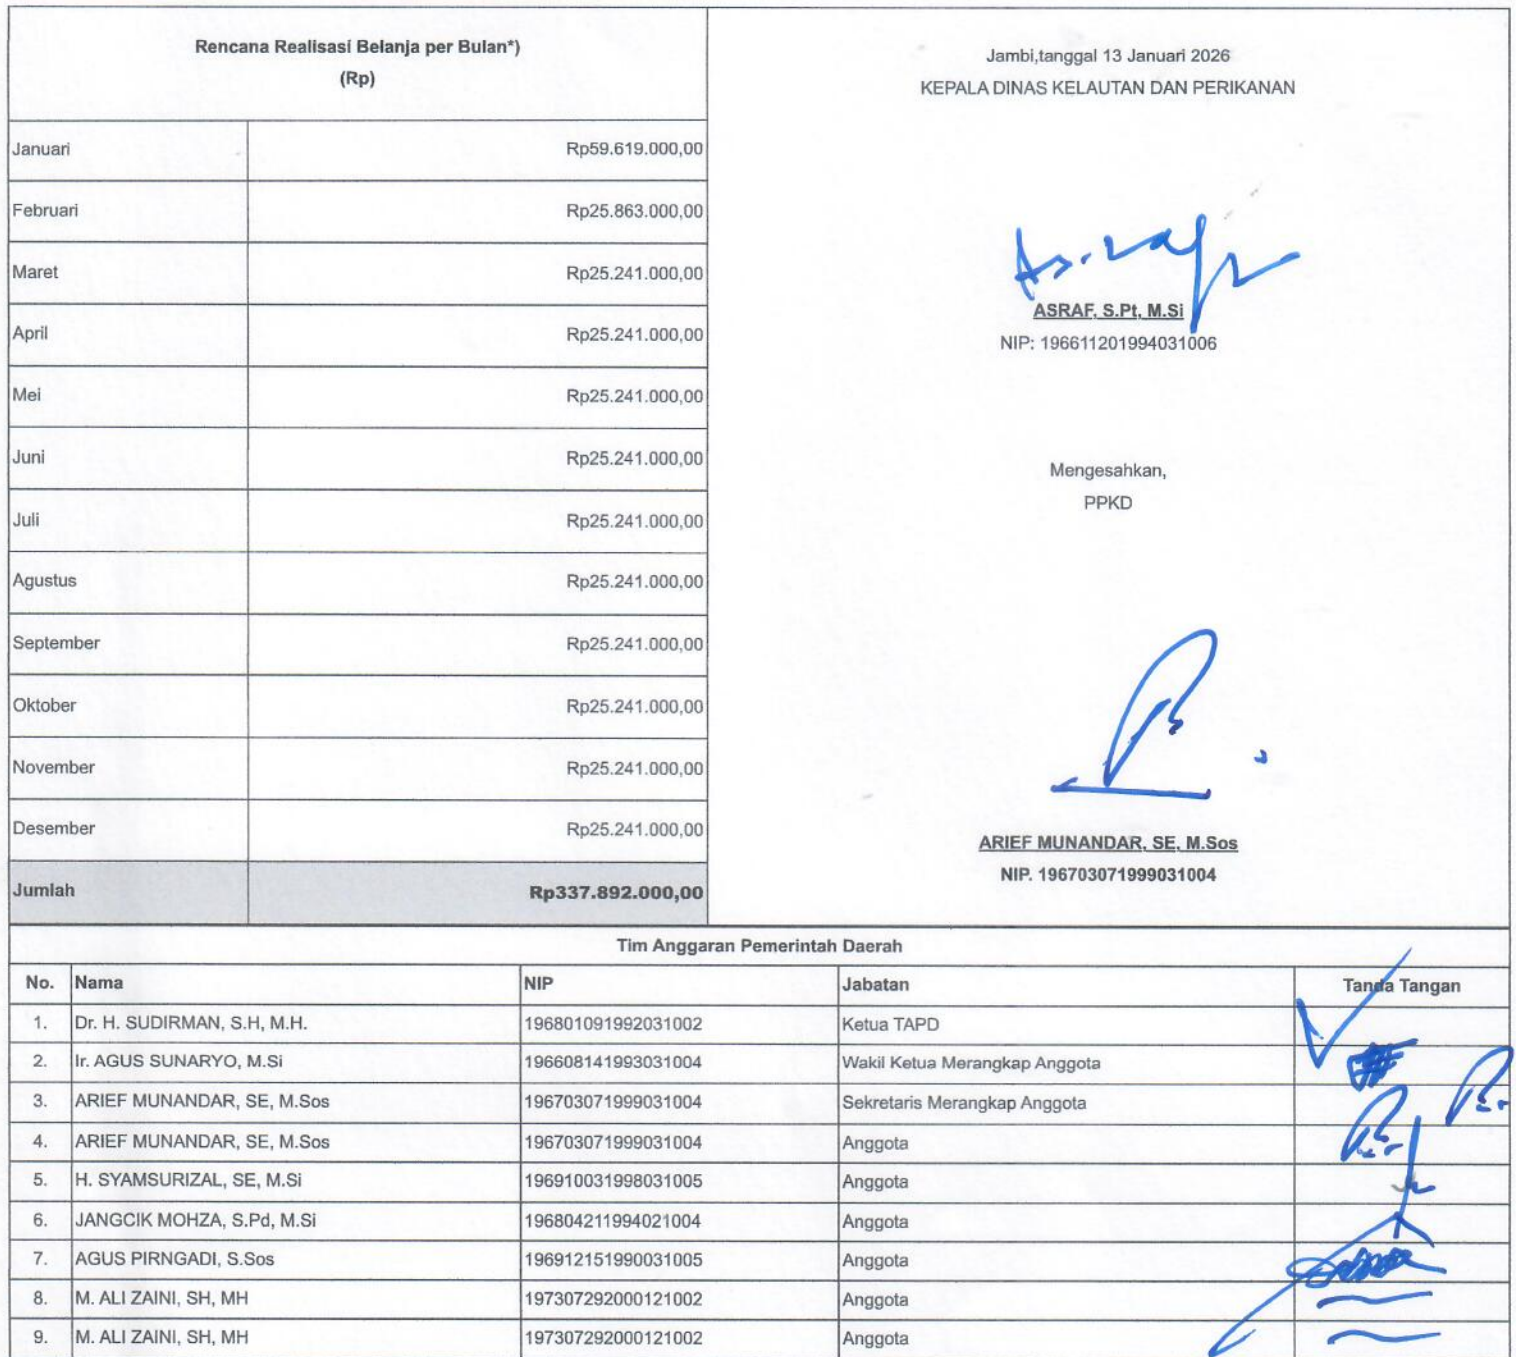 Rencana Realisasi Belanja per Bulan*)
(Rp)
Januari Rp59.619.000,00
Februari Rp25.863.000,00
Maret Rp25.241.000,00
April Rp25.241.000,00
Mei Rp25.241.000,00
Juni Rp25.241.000,00
Juli Rp25.241.000,00
Agustus Rp25.241.000,00
September Rp25.241.000,00
Oktober Rp25.241.000,00
November Rp25.241.000,00
Desember Rp25.241.000,00
Jumlah Rp337.892.000,00
Jambi,tanggal 13 Januari 2026
KEPALA DINAS KELAUTAN DAN PERIKANAN
ASRAF, S.Pt, M.Si
NIP: 196611201994031006
Mengesahkan,
PPKD
ARIEF MUNANDAR, SE, M.Sos
NIP. 196703071999031004
Tim Anggaran Pemerintah Daerah
No. Nama NIP Jabatan Tanda Tangan
1. Dr. H. SUDIRMAN, S.H, M.H. 196801091992031002 Ketua TAPD
2. Ir. AGUS SUNARYO, M.Si 196608141993031004 Wakil Ketua Merangkap Anggota
3. ARIEF MUNANDAR, SE, M.Sos 196703071999031004 Sekretaris Merangkap Anggota
4. ARIEF MUNANDAR, SE, M.Sos 196703071999031004 Anggota
5. H. SYAMSURIZAL, SE, M.Si 196910031998031005 Anggota
6. JANGCIK MOHZA, S.Pd, M.Si 196804211994021004 Anggota
7. AGUS PIRNGADI, S.Sos 196912151990031005 Anggota
8. M. ALI ZAINI, SH, MH 197307292000121002 Anggota
9. M. ALI ZAINI, SH, MH 197307292000121002 Anggota